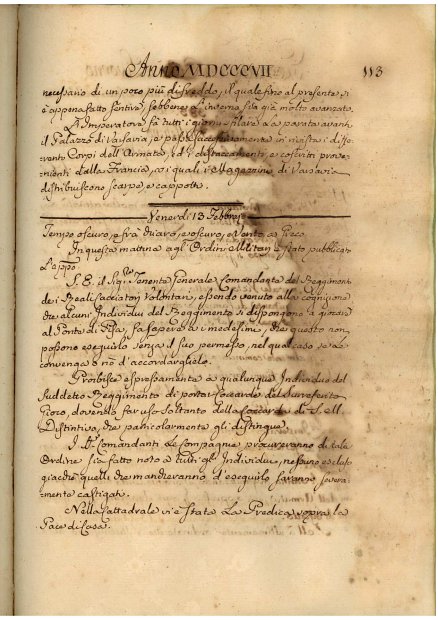 Anno MDCCCVII 113
necessario di un poco più di freddo, il quale fino al presente si
è appena fatto sentire, sebbene l'inverno sia già molto avanzato.
L'Imperatore fà tutti i giorni sfilare la parata avanti
il Palazzo di Varsavia, e passa in rivista i diffe-
renti Corpi dell'Armata, ed i distaccamenti, e coscritti prove-
nienti dalla Francia, ai quali i Magazzini di Varsavia
distribuiscono scarpe, e cappotti.
Venerdì 13 Febbraio
Tempo oscuro, e frà chiaro, e oscuro, e Vento a Greco.
In questa mattina agl'Ordini Militari è stato pubblicato
L'appo.
S. E. il Sig. Tenente Generale Comandante del Reggimento
de i Reali Cacciatori Volontari, essendo venuto alla cognizione
che alcuni Individui del Reggimento si dispongono a giocare
al Ponte di Pisa, fà sapere a i medesimi, che questo non
possono eseguirlo senza il suo permesso, nel qual caso se le
convenga o nò d'accordarglielo.
Proibisce espressamente a qualunque Individuo del
Suddetto Reggimento di portar Coccarde del Surriferito
Gioco, dovendo far uso soltanto della Coccarda di S. M.
Distintiva, che particolarmente gli distingue.
I Sig. Comandanti le Compagnie procureranno che tale
Ordine sia fatto noto a tutti gl'Individui, nessuno escluso
giacchè quelli che mancheranno d'eseguirlo saranno severa-
mente castigati.
Nella Cattedrale vi è stata la Predica sopra la
Pace di Casa.